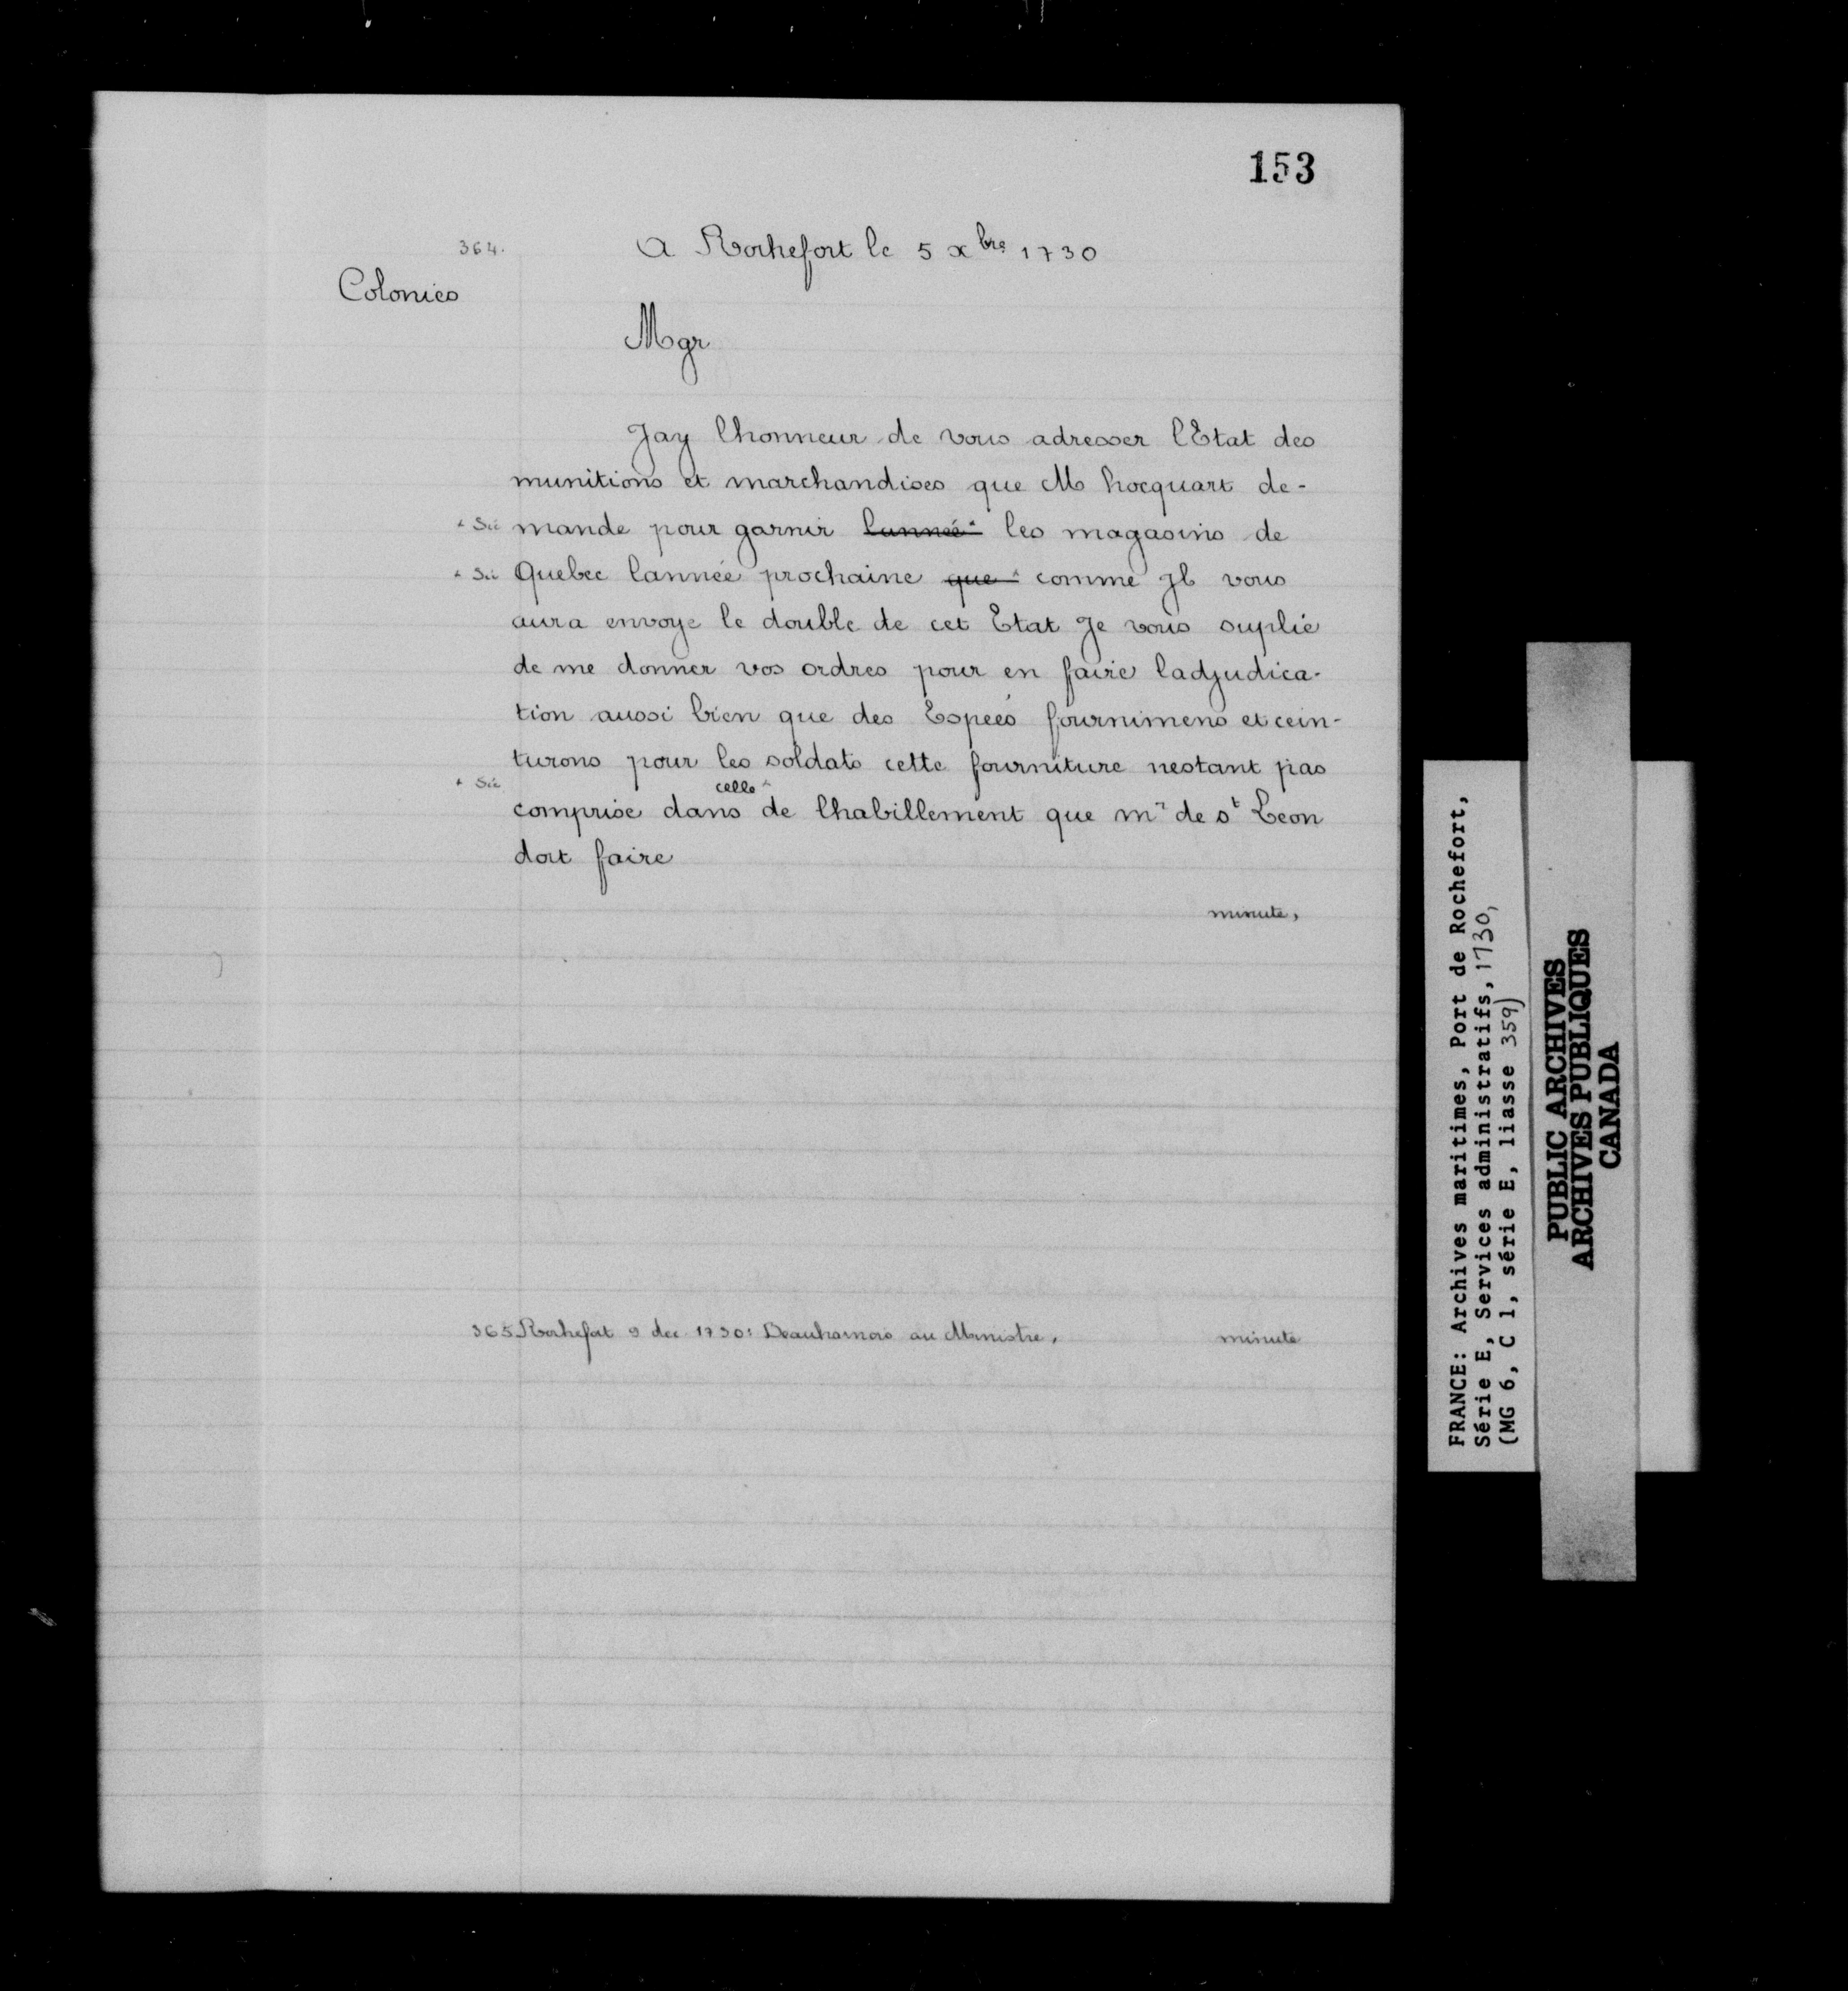 153
364.
A Rochefort le 5 xbre 1730
Colonies
Mgr
Jay lhonneur de vous adresser l'Etat des
munitions et marchandises que M hocquart de-
+ Sic mande pour garnir lannée + les magasins de
+ Sic Quebec lannée prochaine que + comme Jl vous
aura envoye le double de cet Etat Je vous suplie
de me donner vos ordres pour en faire ladjudica-
tion aussi bien que des Espeés fournimens et cein-
turons pour les soldats cette fourniture nestant pas
+ Sic
celle +
comprise dans de lhabillement que mr de st Leon
doit faire
minute,
365 Rochefort 9 dec 1730: Beauharnois au Ministre, minute
FRANCE: Archives maritimes, Port de Rochefort,
Série E, Services administratifs, 1730,
(MG 6, C 1, série E, liasse 359)
PUBLIC ARCHIVES
ARCHIVES PUBLIQUES
CANADA